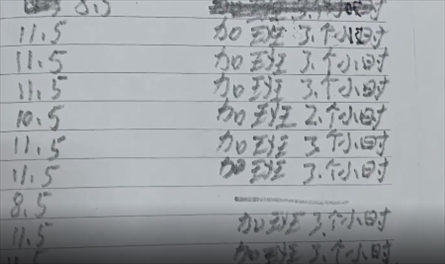 8.5 加班 3.个小时
11.5 加班 3.个小时
11.5 加班 3.个小时
11.5 加班 3.个小时
10.5 加班 2.个小时
11.5 加班 3.个小时
11.5 加班 3.个小时
8.5
11.5 加班 3.个小时
11.5 加班 3.个小时